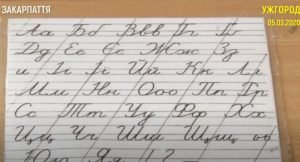 ЗАКАРПАТТЯ
УЖГОРОД
05.03.2020
Аа Бб Ввв Гг Ґґ
Дд Ее Єє Жж Зз
и Іі Її Йй Кк Лл
Мм Нн Ооо Пп Рр
Сс Тт Уу Фф Хх
Цц Чч Шш Щщ оо
Юю Яя